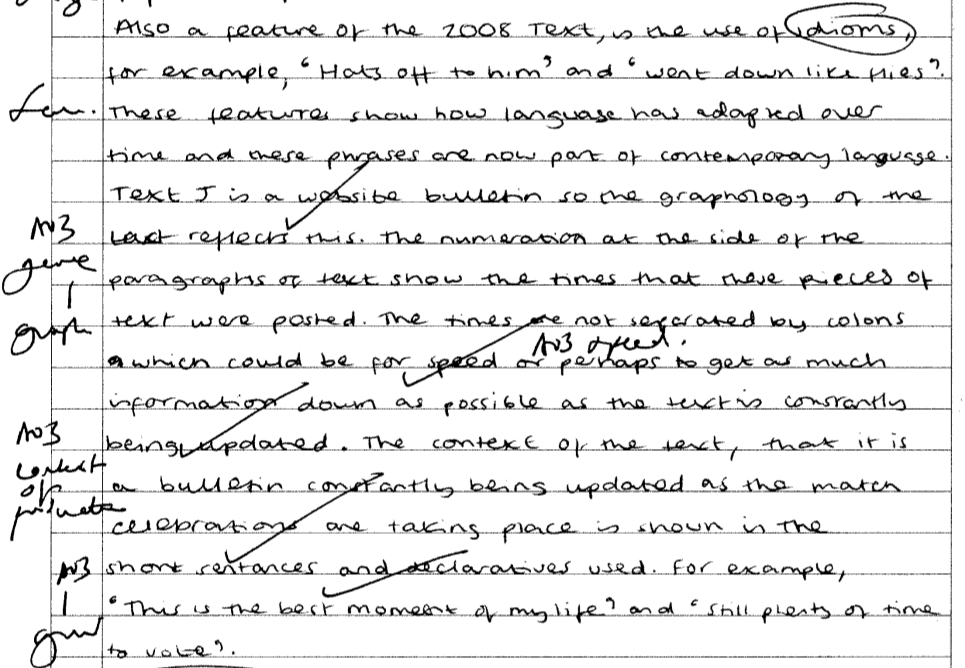 Also a feature of the 2008 Text, is the use of idioms,
for example, "Hats off to him" and "went down like flies".
These features show how language has adapted over
time and these phrases are now part of contemporary language.
Text J is a website bulletin so the graphology of the
AO3 text reflects this. The numeration at the side of the
genre paragraphs of text show the times that these pieces of
graph text were posted. The times are not separated by colons
AO3 speed.
which could be for speed or perhaps to get as much
information down as possible as the text is constantly
AO3 being updated. The context of the text, that it is
context of a bulletin constantly being updated as the match
celebrations are taking place is shown in the
AO3 short sentances and declaratives used. For example,
"This is the best moment of my life" and "Still plenty of time
to vote".